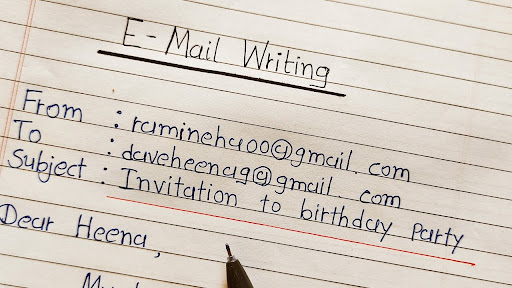 E-Mail Writing
From : ramineha00@gmail.com
To : daveheena19@gmail com
Subject : Invitation to birthday party
Dear Heena,